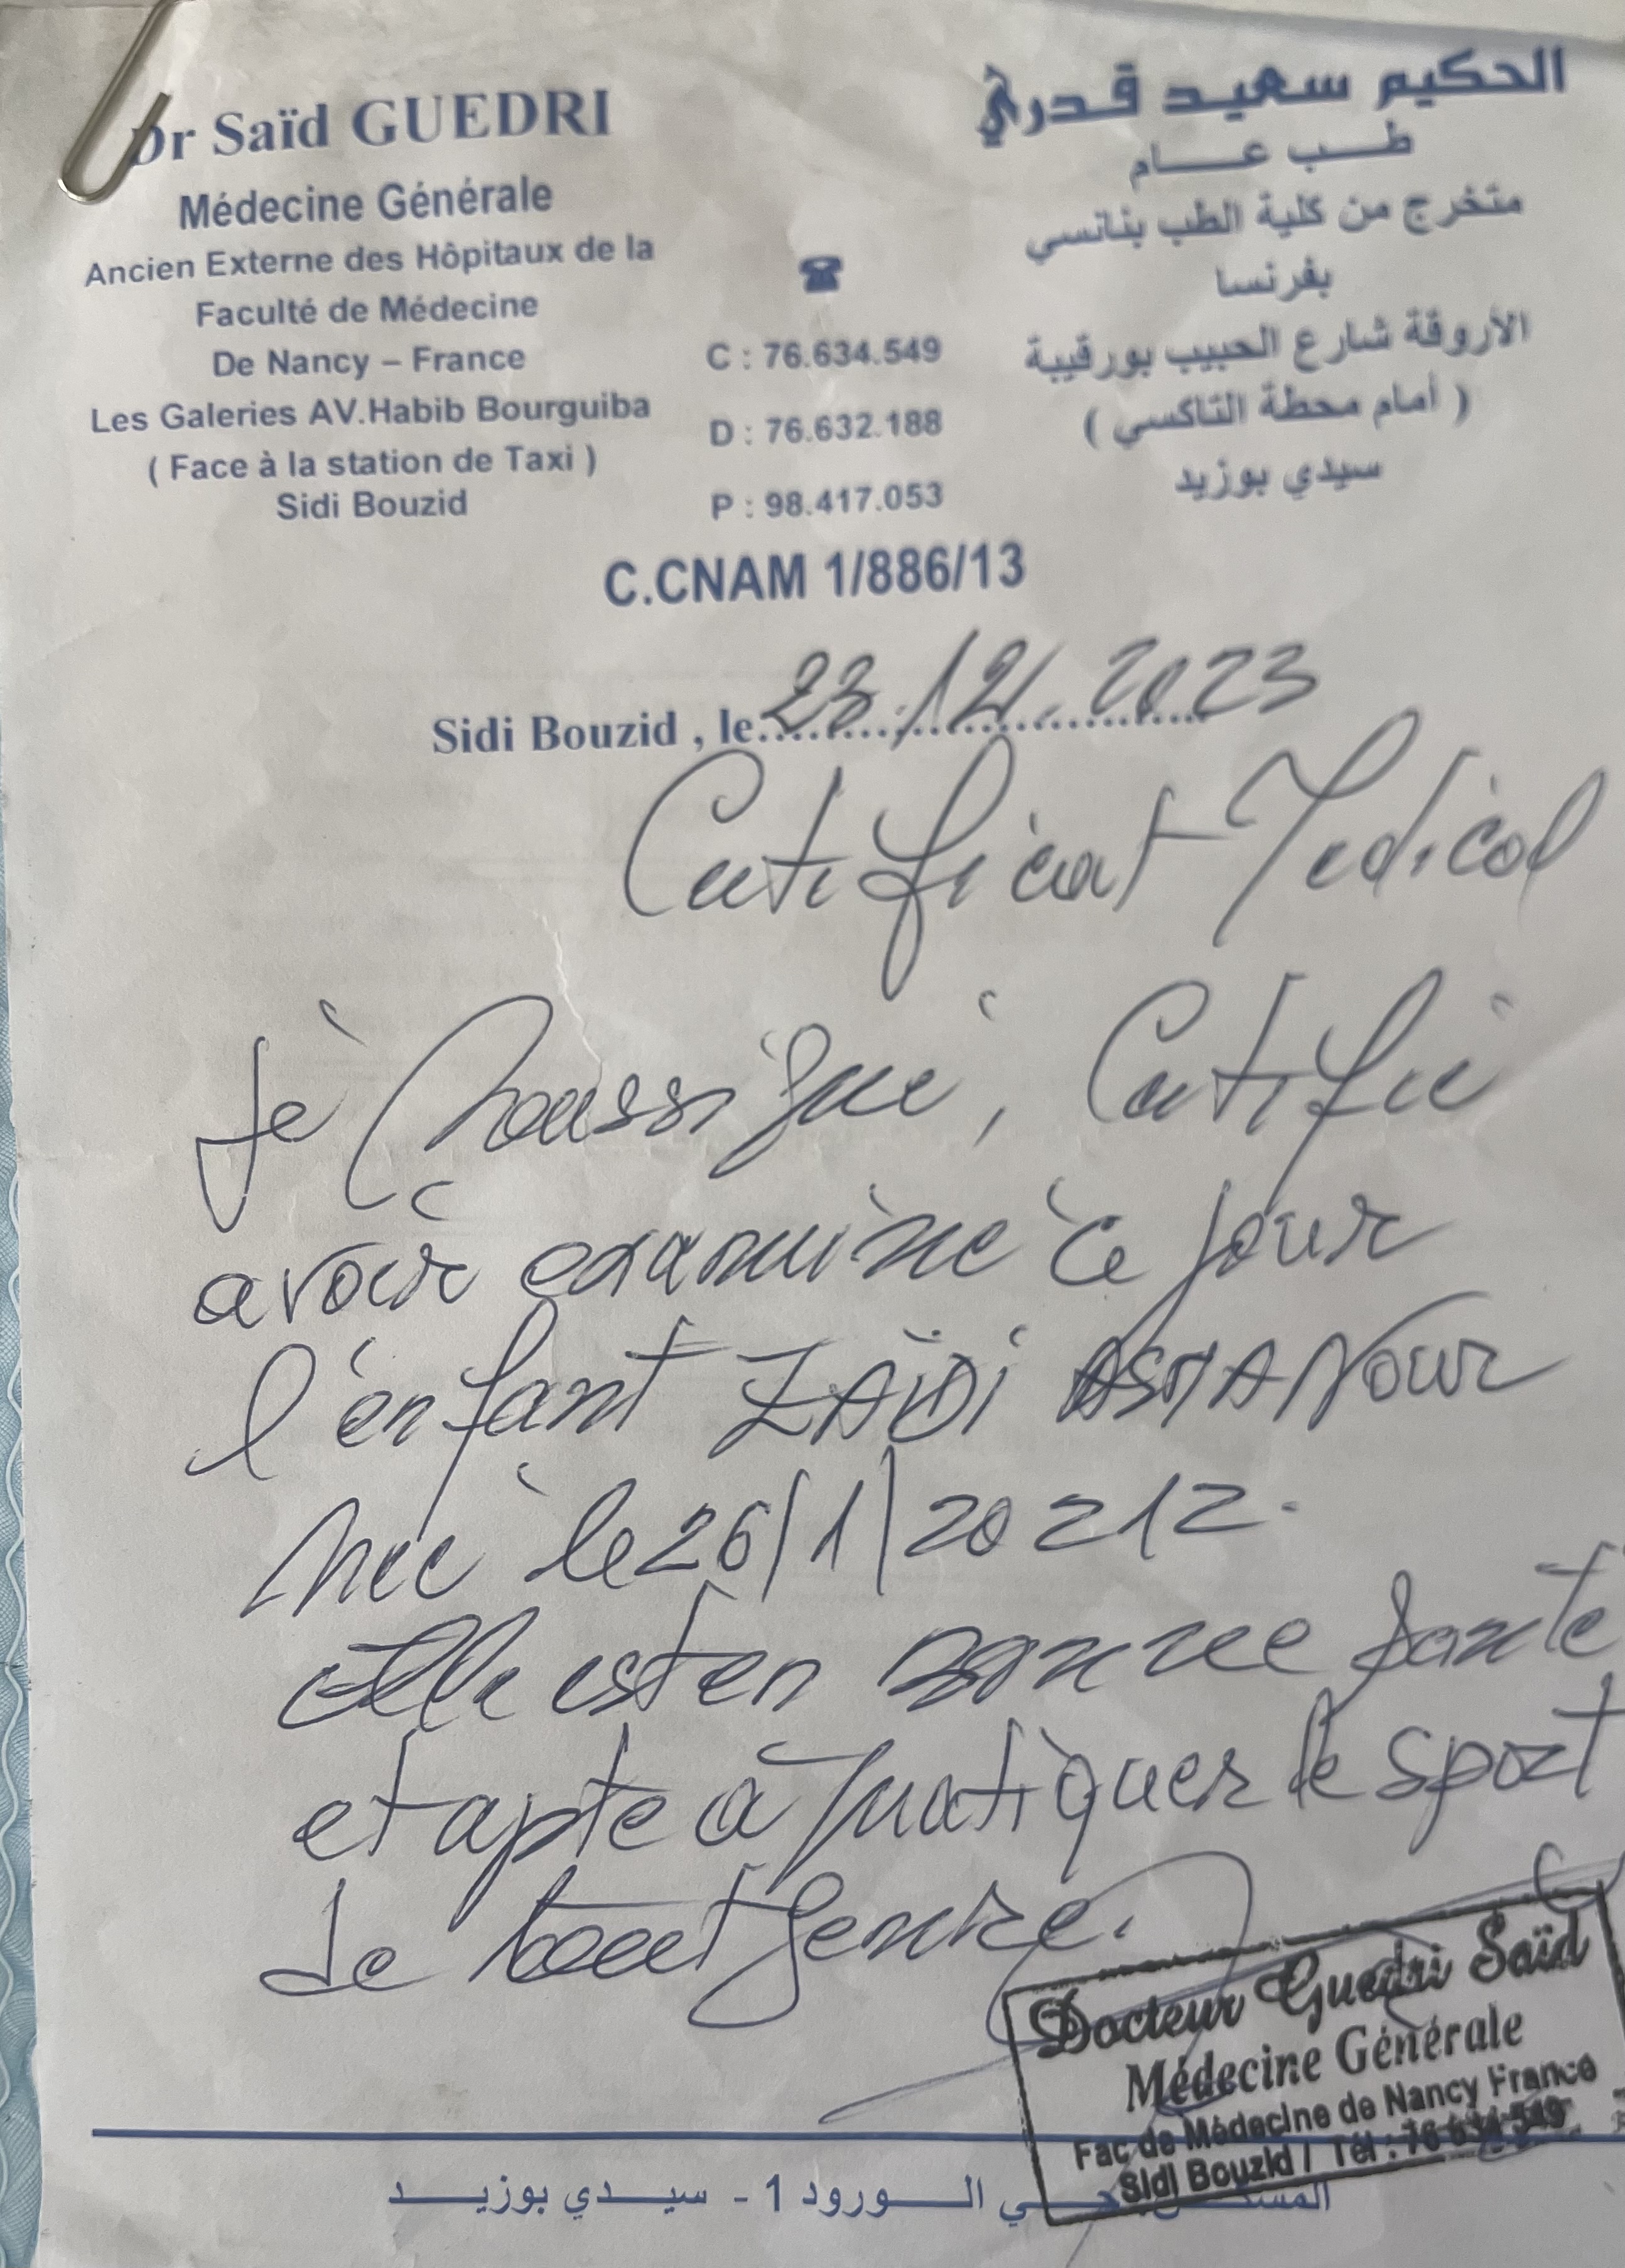 Dr Saïd GUEDRI
Médecine Générale
Ancien Externe des Hôpitaux de la
Faculté de Médecine
De Nancy – France
Les Galeries AV.Habib Bourguiba
( Face à la station de Taxi )
Sidi Bouzid
☎
C : 76.634.549
D : 76.632.188
P : 98.417.053
الحكيم سعيد قدري
طب عام
متخرج من كلية الطب بنانسي
بفرنسا
الأروقة شارع الحبيب بورقيبة
( أمام محطة التاكسي )
سيدي بوزيد
C.CNAM 1/886/13
Sidi Bouzid , le 23/12/2023
Certificat Medical
Je soussigné, Certifie
avoir examiné ce jour
l'enfant ZAÏDI ASMA Nour
née le 26/1/20212.
elle est en bonne santé
et apte à pratiquer le sport
de tout genre.
Docteur Guedri Saïd
Médecine Générale
Fac de Médecine de Nancy France
Sidi Bouzid / Tél : 76 634 549
المسكن حي الورود 1 - سيدي بوزيد